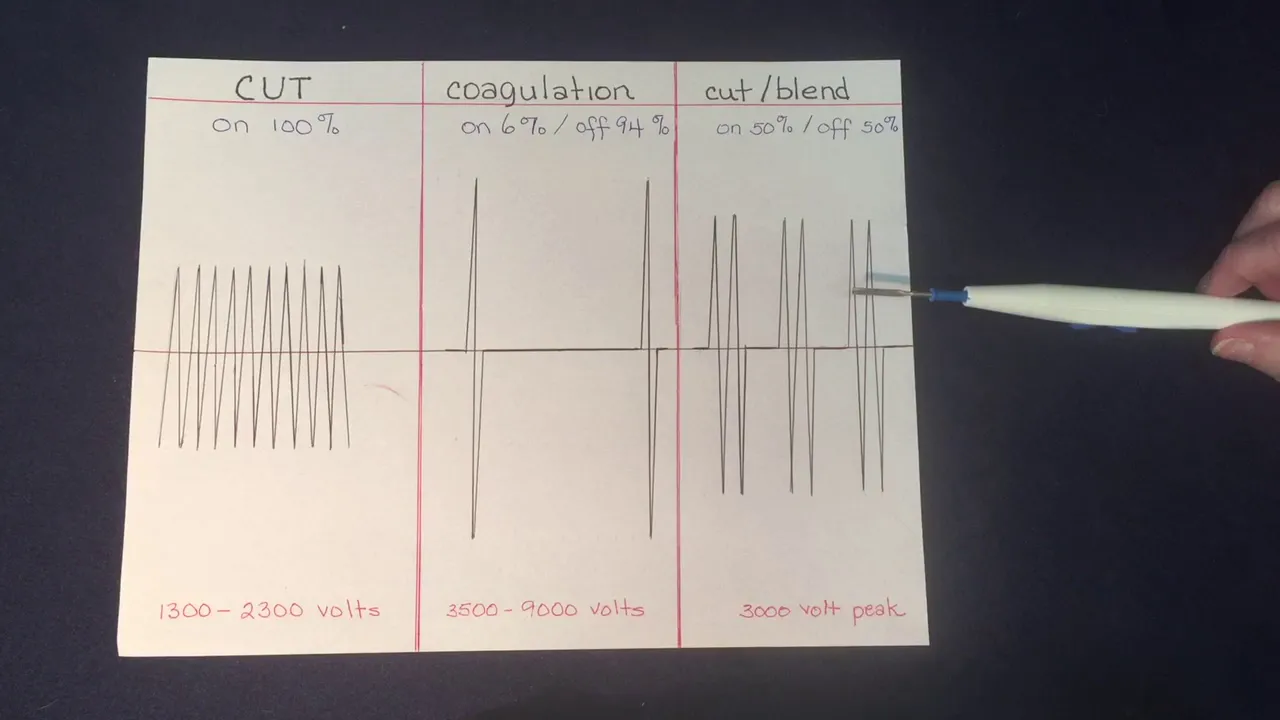 CUT
on 100%
1300 - 2300 volts
coagulation
on 6% / off 94%
3500 - 9000 volts
cut/blend
on 50% / off 50%
3000 volt peak